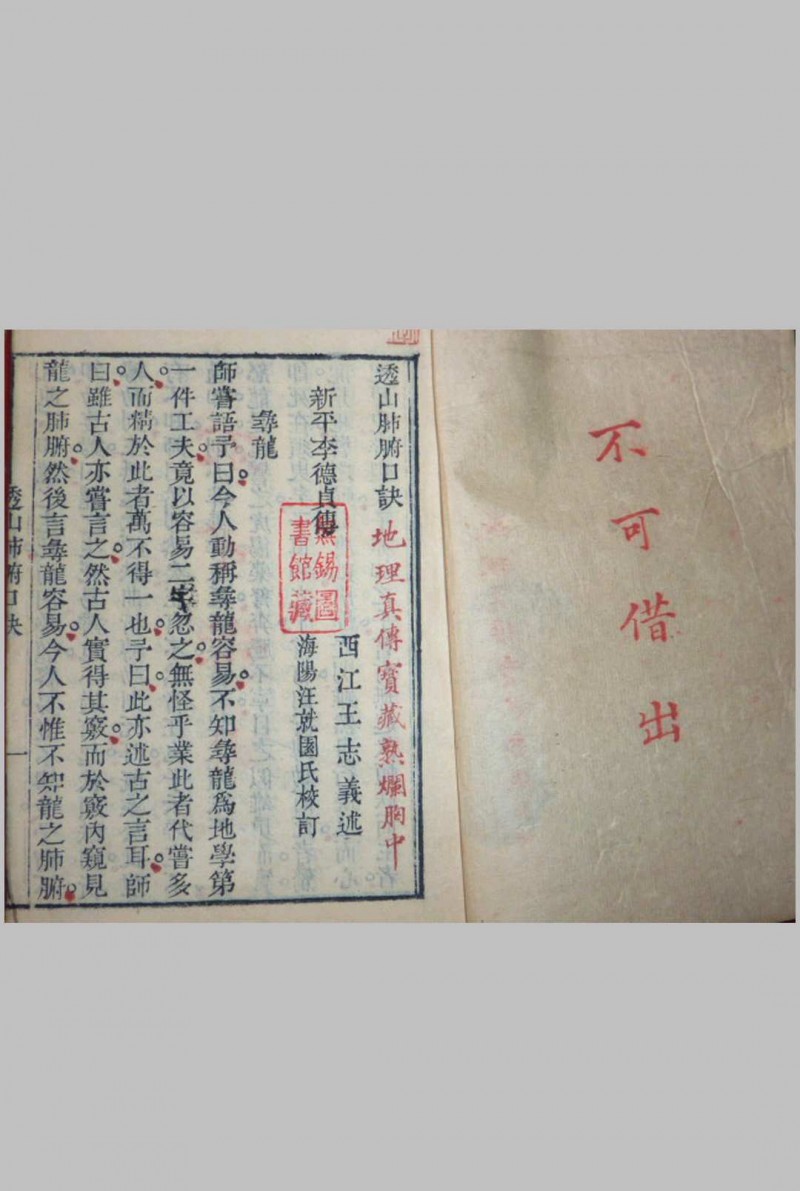 不可借出
透山肺腑口訣
地理真傳寳藏熟爛胸中
新平李德貞傳
無錫圖書館藏
西江王志義述
海陽汪就園氏校訂
尋龍
師嘗語予曰今人動稱尋龍容易不知尋龍爲地學第
一件工夫竟以容易二字忽之無怪乎業此者代嘗多
人而精於此者萬不得一也予曰此亦述古之言耳師
曰雖古人亦嘗言之然古人實得其竅而於竅內窺見
龍之肺腑然後言尋龍容易今人不惟不知龍之肺腑
透山肺腑口訣
一